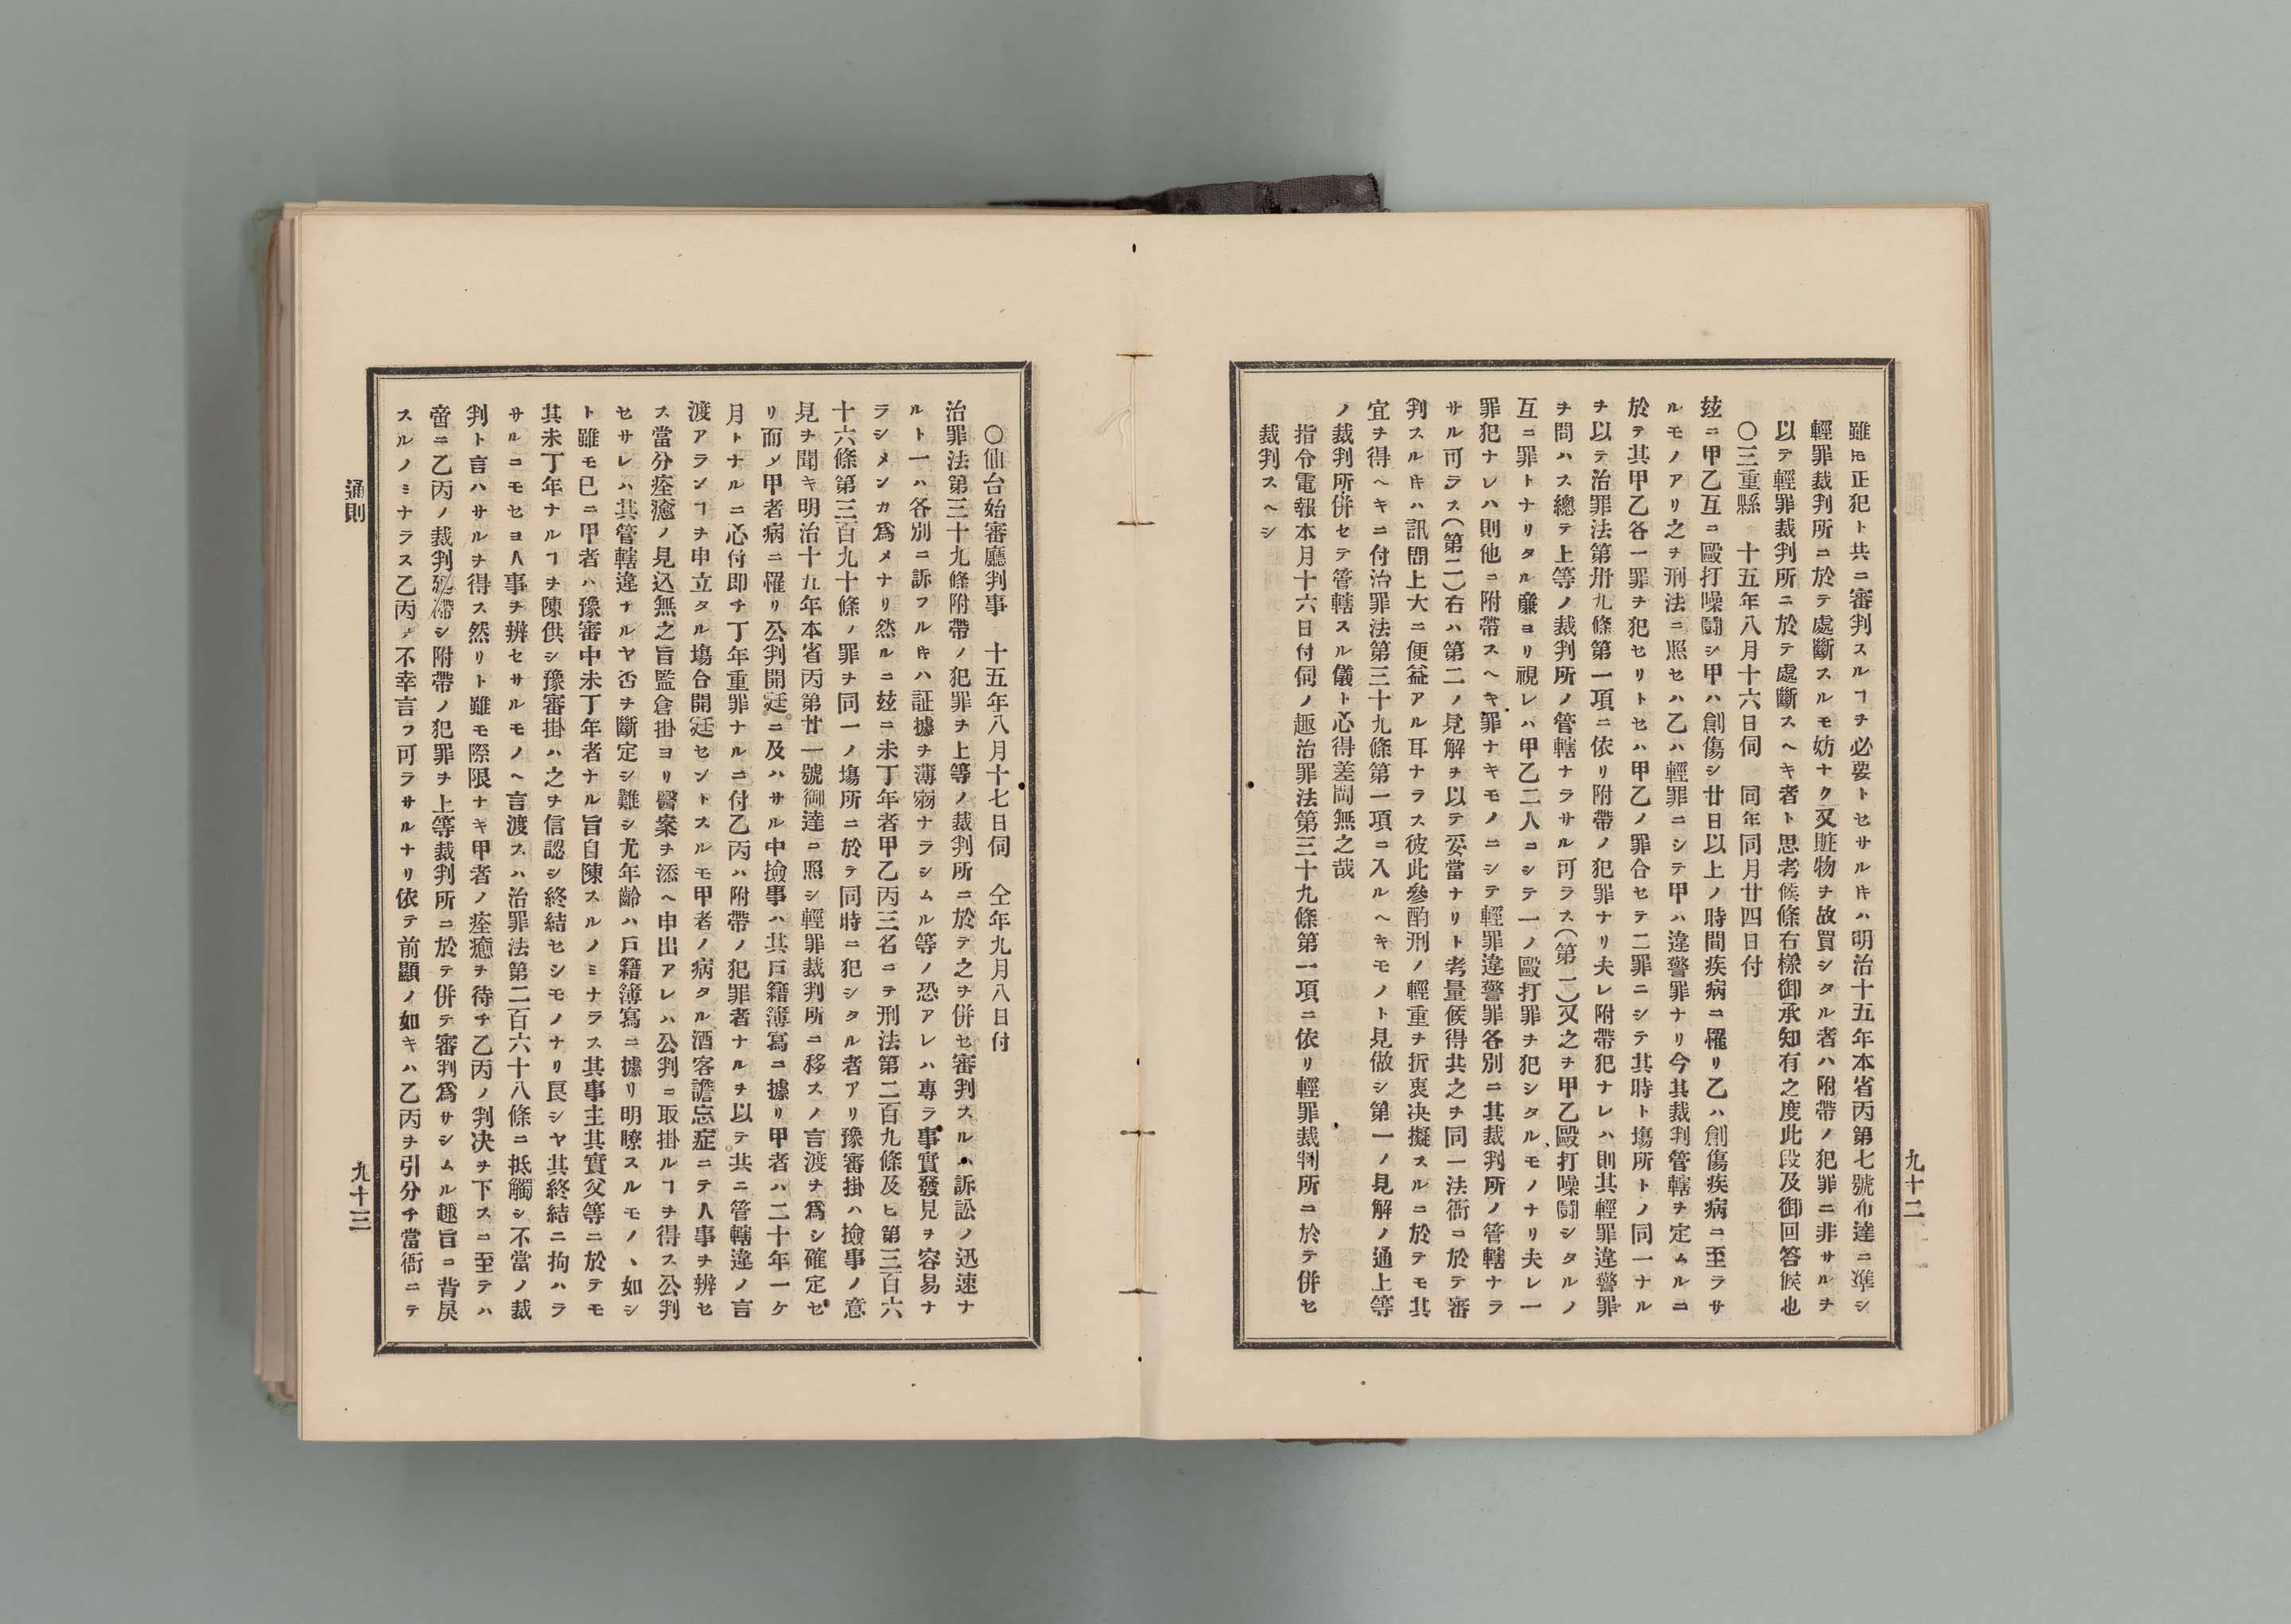 九十二
雖𪜈正犯ト共ニ審判スルヿヲ必要トセサル𪜈ハ明治十五年本省丙第七號布達ニ凖シ
輕罪裁判所ニ於テ處斷スルモ妨ナク又贓物ヲ故買シタル者ハ附帶ノ犯罪ニ非サルヲ
以テ輕罪裁判所ニ於テ處斷スヘキ者ト思考候條右樣御承知有之度此段及御回答候也
〇三重縣 十五年八月十六日伺 同年同月廿四日付
玆ニ甲乙互ニ毆打噪鬪シ甲ハ創傷シ廿日以上ノ時間疾病ニ罹リ乙ハ創傷疾病ニ至ラサ
ルモノアリ之ヲ刑法ニ照セハ乙ハ輕罪ニシテ甲ハ違警罪ナリ今其裁判管轄ヲ定ムルニ
於テ其甲乙各一罪ヲ犯セリトセハ甲乙ノ罪合セテ二罪ニシテ其時ト塲所トノ同一ナル
ヲ以テ治罪法第卅九條第一項ニ依リ附帶ノ犯罪ナリ夫レ附帶犯ナレハ則其輕罪違警罪
ヲ問ハス總テ上等ノ裁判所ノ管轄ナラサル可ラス(第一)又之ヲ甲乙毆打噪鬪シタルノ
互ニ罪トナリタル廉ヨリ視レハ甲乙二人ニシテ一ノ毆打罪ヲ犯シタルモノナリ夫レ一
罪犯ナレハ則他ニ附帶スヘキ罪ナキモノニシテ輕罪違警罪各別ニ其裁判所ノ管轄ナラ
サル可ラス(第二)右ハ第二ノ見解ヲ以テ妥當ナリト考量候得共之ヲ同一法衙ニ於テ審
判スルキハ訊問上大ニ便益アル耳ナラス彼此參酌刑ノ輕重ヲ折衷决擬スルニ於テモ其
宜ヲ得ヘキニ付治罪法第三十九條第一項ニ入ルヘキモノト見做シ第一ノ見解ノ通上等
ノ裁判所併セテ管轄スル儀ト心得差閊無之哉
指令電報本月十六日付伺ノ趣治罪法第三十九條第一項ニ依リ輕罪裁判所ニ於テ併セ
裁判スヘシ
〇仙台始審廳判事 十五年八月十七日伺 仝年九月八日付
治罪法第三十九條附帶ノ犯罪ヲ上等ノ裁判所ニ於テ之ヲ併セ審判スルハ訴訟ノ迅速ナ
ルト一ハ各別ニ訴フルキハ証據ヲ薄弱ナラシムル等ノ恐アレハ專ラ事實發見ヲ容易ナ
ラシメンカ爲メナリ然ルニ玆ニ未丁年者甲乙丙三名ニテ刑法第二百九條及ヒ第三百六
十六條第三百九十條ノ罪ヲ同一ノ塲所ニ於テ同時ニ犯シタル者アリ豫審掛ハ撿事ノ意
見ヲ聞キ明治十五年本省丙第廿一號御達ニ照シ輕罪裁判所ニ移スノ言渡ヲ爲シ確定セ
リ而ノ甲者病ニ罹リ公判開廷ニ及ハサル中撿事ハ其戸籍簿寫ニ據リ甲者ハ二十年一ケ
月トナルニ心付即チ丁年重罪ナルニ付乙丙ハ附帶ノ犯罪者ナルヲ以テ共ニ管轄違ノ言
渡アランヿヲ申立タル塲合開廷セントスルモ甲者ノ病タル酒客譫忘症ニテ人事ヲ辨セ
ス當分痊癒ノ見込無之旨監倉掛ヨリ醫案ヲ添ヘ申出アレハ公判ニ取掛ルヿヲ得ス公判
セサレハ其管轄違ナルヤ否ヲ斷定シ難シ尤年齡ハ戸籍簿寫ニ據リ明瞭スルモノヽ如シ
ト雖モ已ニ甲者ハ豫審中未丁年者ナル旨自陳スルノミナラス其事主其實父等ニ於テモ
其未丁年ナルヿヲ陳供シ豫審掛ハ之ヲ信認シ終結セシモノナリ良シヤ其終結ニ拘ハラ
サルニモセヨ人事ヲ辨セサルモノヘ言渡スハ治罪法第二百六十八條ニ抵觸シ不當ノ裁
判ト言ハサルヲ得ス然リト雖モ際限ナキ甲者ノ痊癒ヲ待チ乙丙ノ判决ヲ下スニ至テハ
啻ニ乙丙ノ裁判延滯シ附帶ノ犯罪ヲ上等裁判所ニ於テ併テ審判爲サシムル趣旨ニ背戾
スルノミナラス乙丙ノ不幸言フ可ラサルナリ依テ前顯ノ如キハ乙丙ヲ引分チ當衙ニテ
通則
九十三